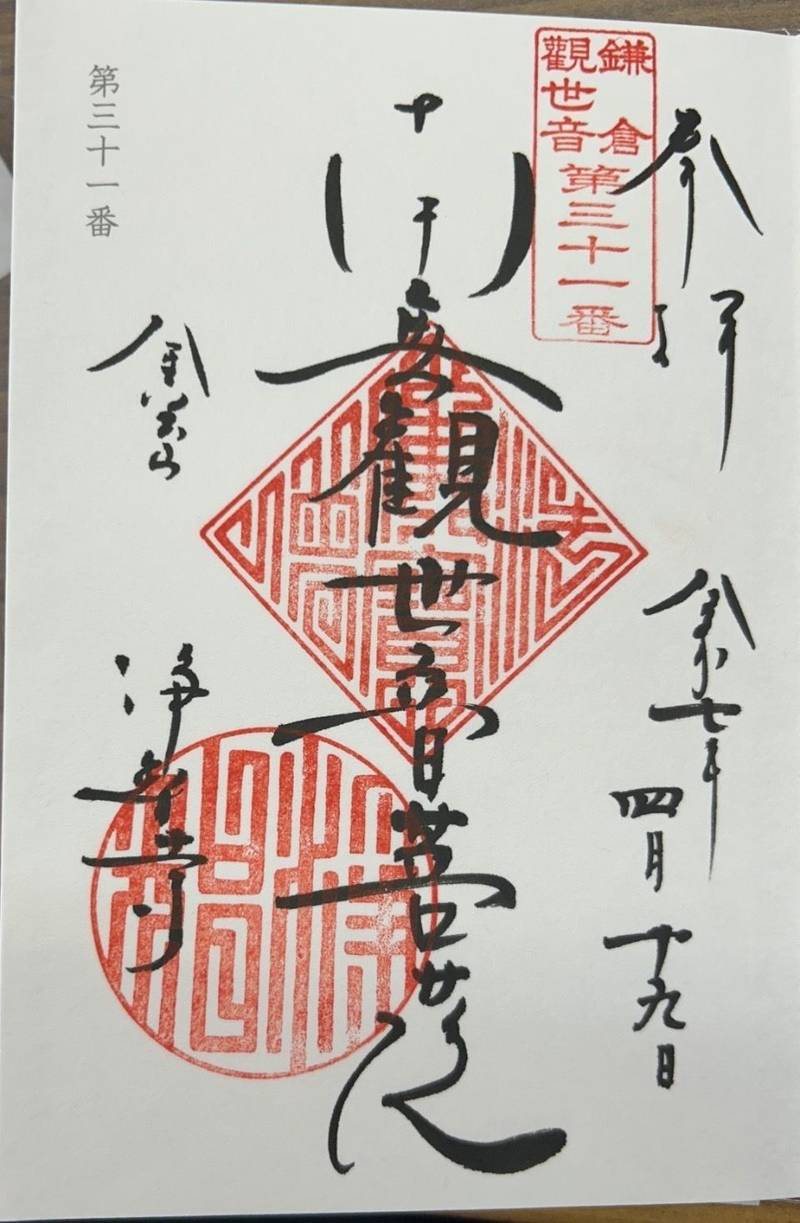 奉拝
令和七年四月十九日
鎌倉
觀世音
第三十一番
南無観世音菩薩
第三十一番
金宝山
浄智寺